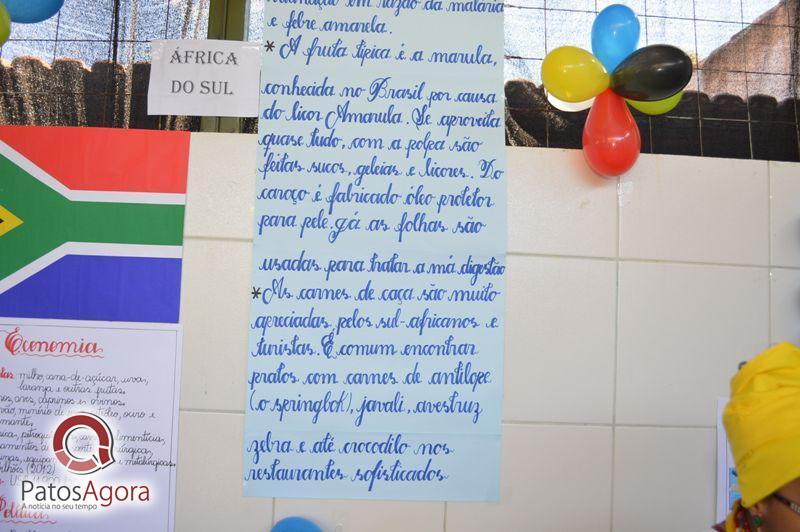 ÁFRICA
DO SUL
em razão da malária
e febre amarela.
* A fruta típica é a marula,
conhecida no Brasil por causa
do licor Amarula. Se aproveita
quase tudo, com a polpa são
feitas sucos, geleias e licores. Do
caroço é fabricado óleo protetor
para pele. Já as folhas são
usadas para tratar a má digestão
* As carnes de caça são muito
apreciadas pelos sul-africanos e
turistas. É comum encontrar
pratos com carnes de antílope
(o springbok), javali, avestruz
zebra e até crocodilo nos
restaurantes sofisticados
Economia
milho, cana-de-açúcar, uva,
laranja e outras frutas.
caprinos e ovinos.
minério de ouro e
(2012)
Política
PatosAgora
A notícia no seu tempo